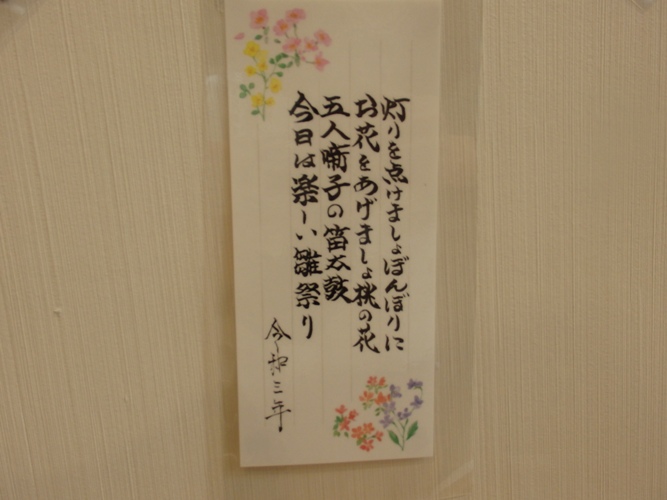 灯りを点けましょぼんぼりに
お花をあげましょ桃の花
五人囃子の笛太鼓
今日は楽しい雛祭り
令和三年